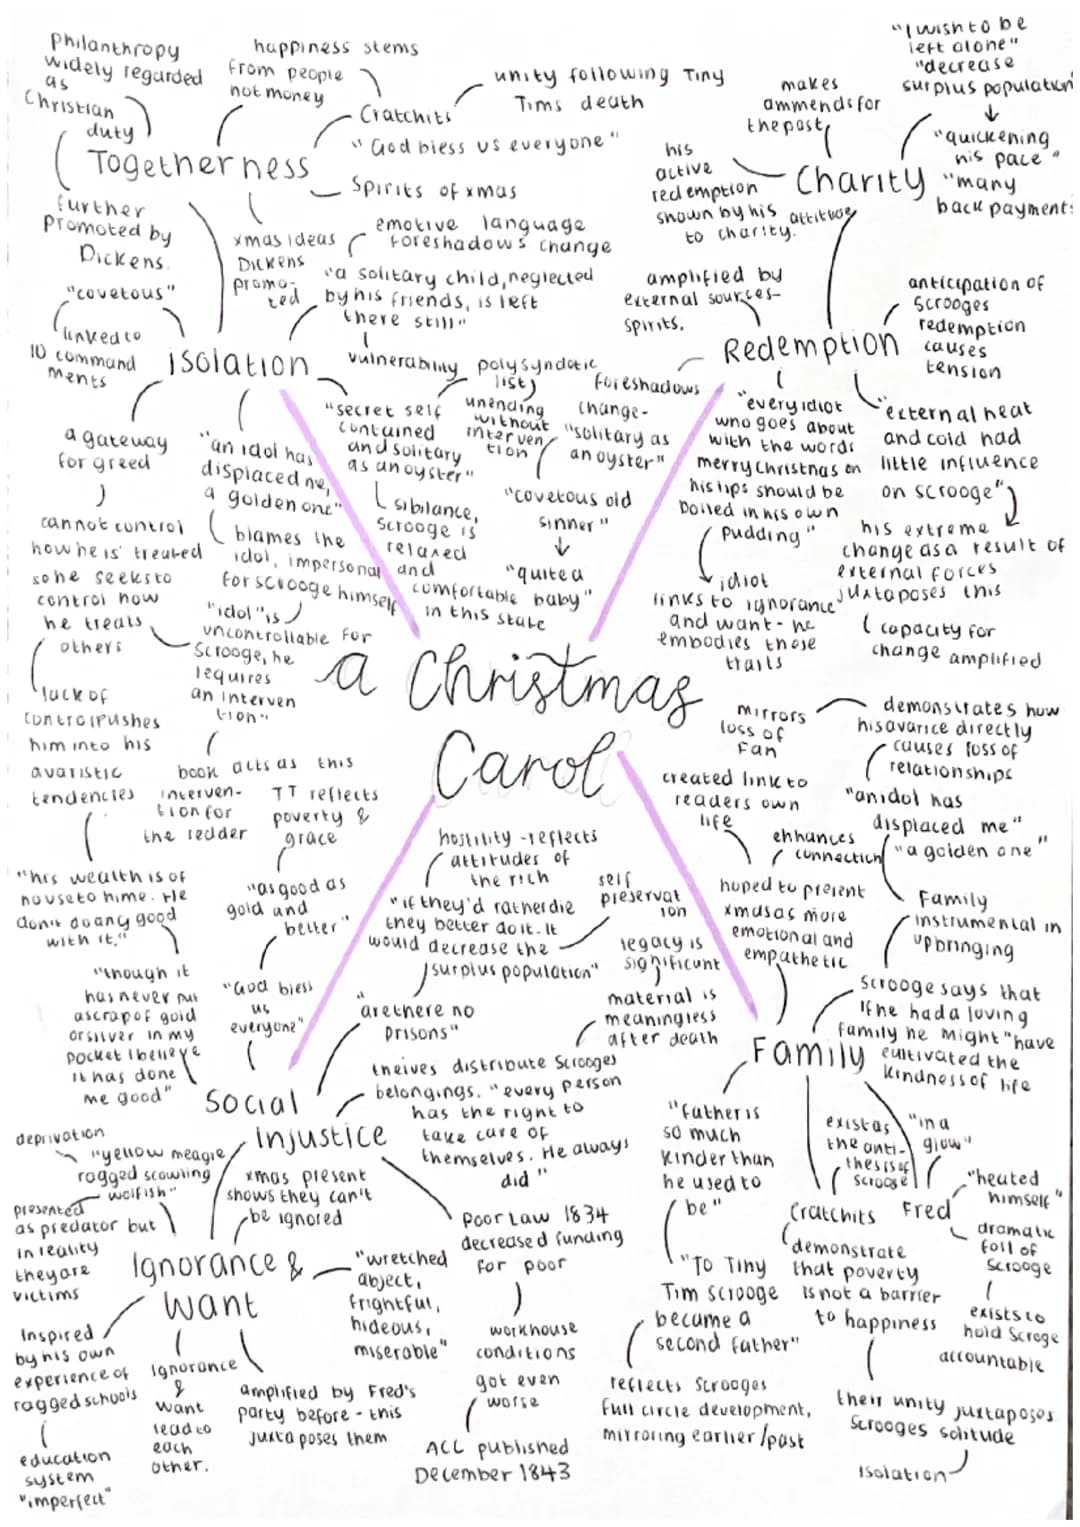 Philanthropy
widely regarded
as
Christian
duty
happiness stems
from people
not money
Cratchits
unity following Tiny
Tims death
"God bless us everyone"
Togetherness
Spirits of xmas
further
promoted by
Dickens.
xmas ideas
Dickens
promo-
ted
emotive language
foreshadows change
"a solitary child, neglected
by his friends, is left
there still"
vulnerability
"covetous"
linked to
10 command
ments
isolation
a gateway
for greed
cannot control
how he is treated
so he seeks to
control how
he treats
others
lack of
control pushes
him into his
avaristic
tendencies
"an idol has
displaced me,
a golden one"
blames the
idol, impersonal
for scrooge himself
"idol" is
uncontrollable for
Scrooge, he
requires
an interven
tion"
book acts as this
interven-
tion for
the reader
"secret self
contained
and solitary
as an oyster"
sibilance,
Scrooge is
relaxed
and
comfortable
in this state
polysyndetic
list
unending
without
interven
tion
"covetous old
sinner"
"quite a
baby"
foreshadows
change-
"solitary as
an oyster"
"I wish to be
left alone"
"decrease
surplus population"
"quickening
his pace"
"many
back payments
makes
ammends for
the past
his
active
redemption
shown by his attitude
to charity.
Charity
amplified by
external sources-
spirits.
Redemption
anticipation of
Scrooges
redemption
causes
tension
"every idiot
who goes about
with the words
merry christmas on
his lips should be
boiled in his own
pudding"
idiot
links to ignorance
and want - he
embodies those
traits
"external heat
and cold had
little influence
on scrooge"
his extreme
change as a result of
external forces
juxtaposes this
capacity for
change amplified
a Christmas
Carol
mirrors
loss of
Fan
demonstrates how
his avarice directly
causes loss of
relationships
"an idol has
displaced me"
"a golden one"
created link to
readers own
life
enhances
connection
hoped to present
xmas as more
emotional and
empathetic
Family
instrumental in
upbringing
Scrooge says that
if he had a loving
family he might "have
cultivated the
kindness of life
Family
"Father is
so much
kinder than
he used to
be"
"To Tiny
Tim Scrooge
became a
second father"
reflects Scrooges
full circle development,
mirroring earlier/past
exist as
the anti-
thesis of
scrooge
Cratchits
demonstrate
that poverty
is not a barrier
to happiness
their unity juxtaposes
Scrooges solitude
isolation
"in a
glow"
"heated
himself"
Fred
dramatic
foil of
Scrooge
exists to
hold Scroge
accountable
"his wealth is of
no use to hime. He
don't do any good
with it,"
"though it
has never put
a scrap of gold
or silver in my
pocket I believe
it has done
me good"
TT reflects
poverty &
grace
"as good as
gold and
better"
"God bless
us
everyone"
hostility - reflects
attitudes of
the rich
"if they'd rather die
they better do it. It
would decrease the
surplus population"
self
preservat
ion
"are there no
prisons"
legacy is
significant
material is
meaningless
after death
theives distribute Scrooges
belongings. "every person
has the right to
take care of
themselves. He always
did"
Social
injustice
Poor Law 1834
decreased funding
for poor
workhouse
conditions
got even
worse
ACC published
December 1843
deprivation
"yellow meagre
ragged scowling
wolfish"
presented
as predator but
in reality
they are
victims
xmas present
shows they can't
be ignored
Ignorance &
Want
"wretched
abject,
frightful,
hideous,
miserable"
Inspired
by his own
experience of
ragged schools
education
system
"imperfect"
Ignorance
&
want
lead to
each
other.
amplified by Fred's
party before - this
juxtaposes them